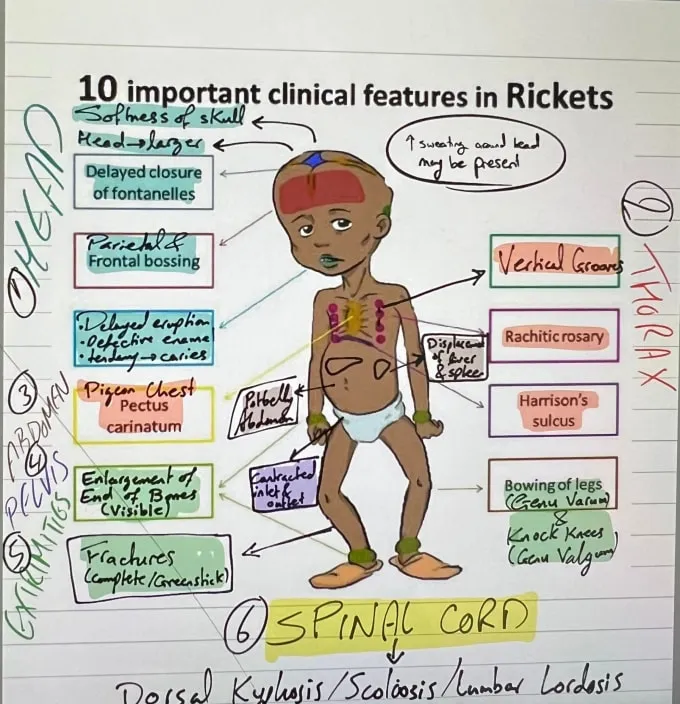 10 important clinical features in Rickets
Softness of skull
Head→larger
↑ sweating around head
may be present
① HEAD
Delayed closure
of fontanelles
Parietal &
Frontal bossing
•Delayed eruption
•Defective ename
•tendency→caries
Pigeon Chest
Pectus
carinatum
Enlargement of
End of Bones
(Visible)
Fractures
(Complete/Greenstick)
Potbelly
Abdomen
Contracted
inlet &
outlet
Displacement
of liver
& spleen
② THORAX
Vertical Grooves
Rachitic rosary
Harrison's
sulcus
Bowing of legs
(Genu Varum)
&
Knock Knees
(Genu Valgum)
③ ABDOMEN
④ PELVIS
⑤ EXTRIMITIES
⑥ SPINAL CORD
↓
Dorsal Kyphosis/Scoliosis/Lumbar Lordosis